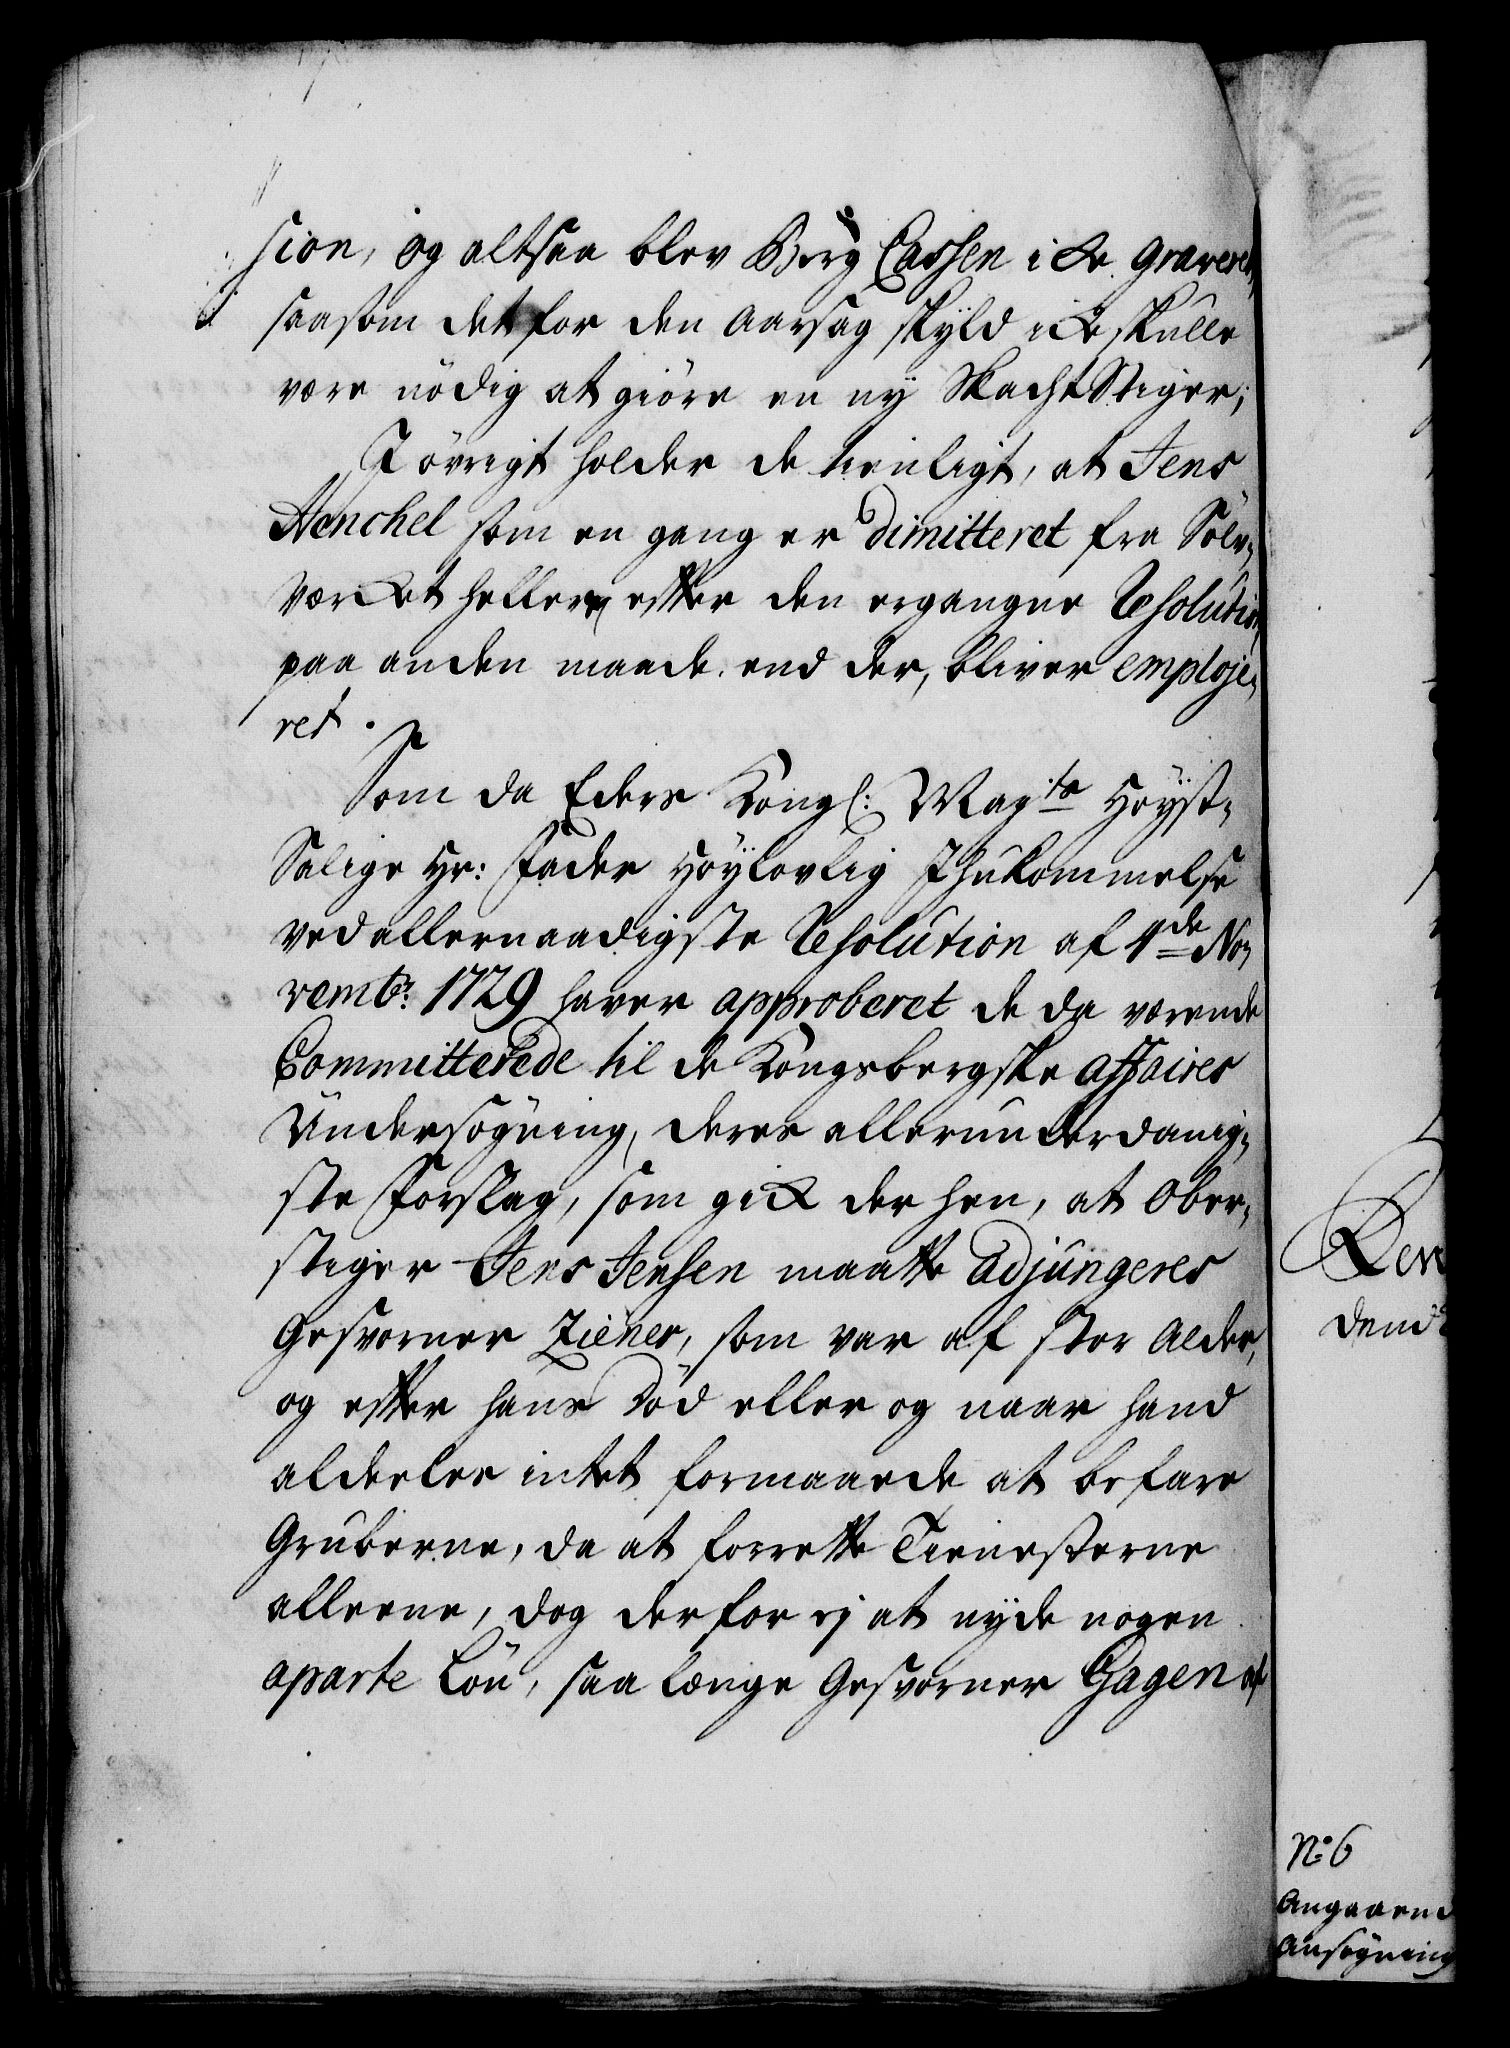 sion, og altsaa blev Berg Cassen icke graveret,
saasom det for den aarsag skyld icke skulle
være nödig at giöre en ny SkachtStiger;
J övrigt holder de tienligt, at Jens
Henchel som en gang er dimitteret fra Sölv-
værcket hellere efter den ergangne Resolution
paa anden maade end der, bliver emploje-
ret.
Som da Eders Kongl: May:ts Höyst-
Salige Hr: Fader Höylovlig Jhukommelse
ved allernaadigste Resolution af 4de No-
vembr: 1729 haver approberet de da værende
Committerede til de Kongsbergske affaires
Undersögning, deres allerunderdanig-
ste Forslag, som gick der hen, at Ober-
stiger Jens Jensen maatte adjungeres
Gesvorner Ziener, som var af stor Alder,
og efter hans Död eller og naar hand
aldeeles intet formaaede at befare
Gruberne, da at forrette Tienesterne
alleene, dog derfor ej at nyde nogen
aparte Lön, saa længe Gesvorner Gagen af
Dend
No 6
Angaaend
Ansögning